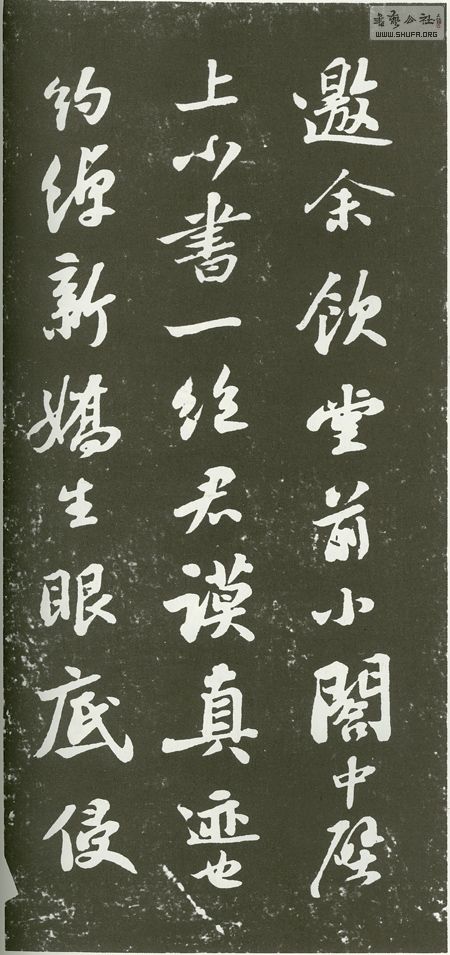 邀余飲堂前小閣中壁
上小書一絕君謨真迹也
約綽新嬌生眼底侵
書藝公社
WWW.SHUFA.ORG